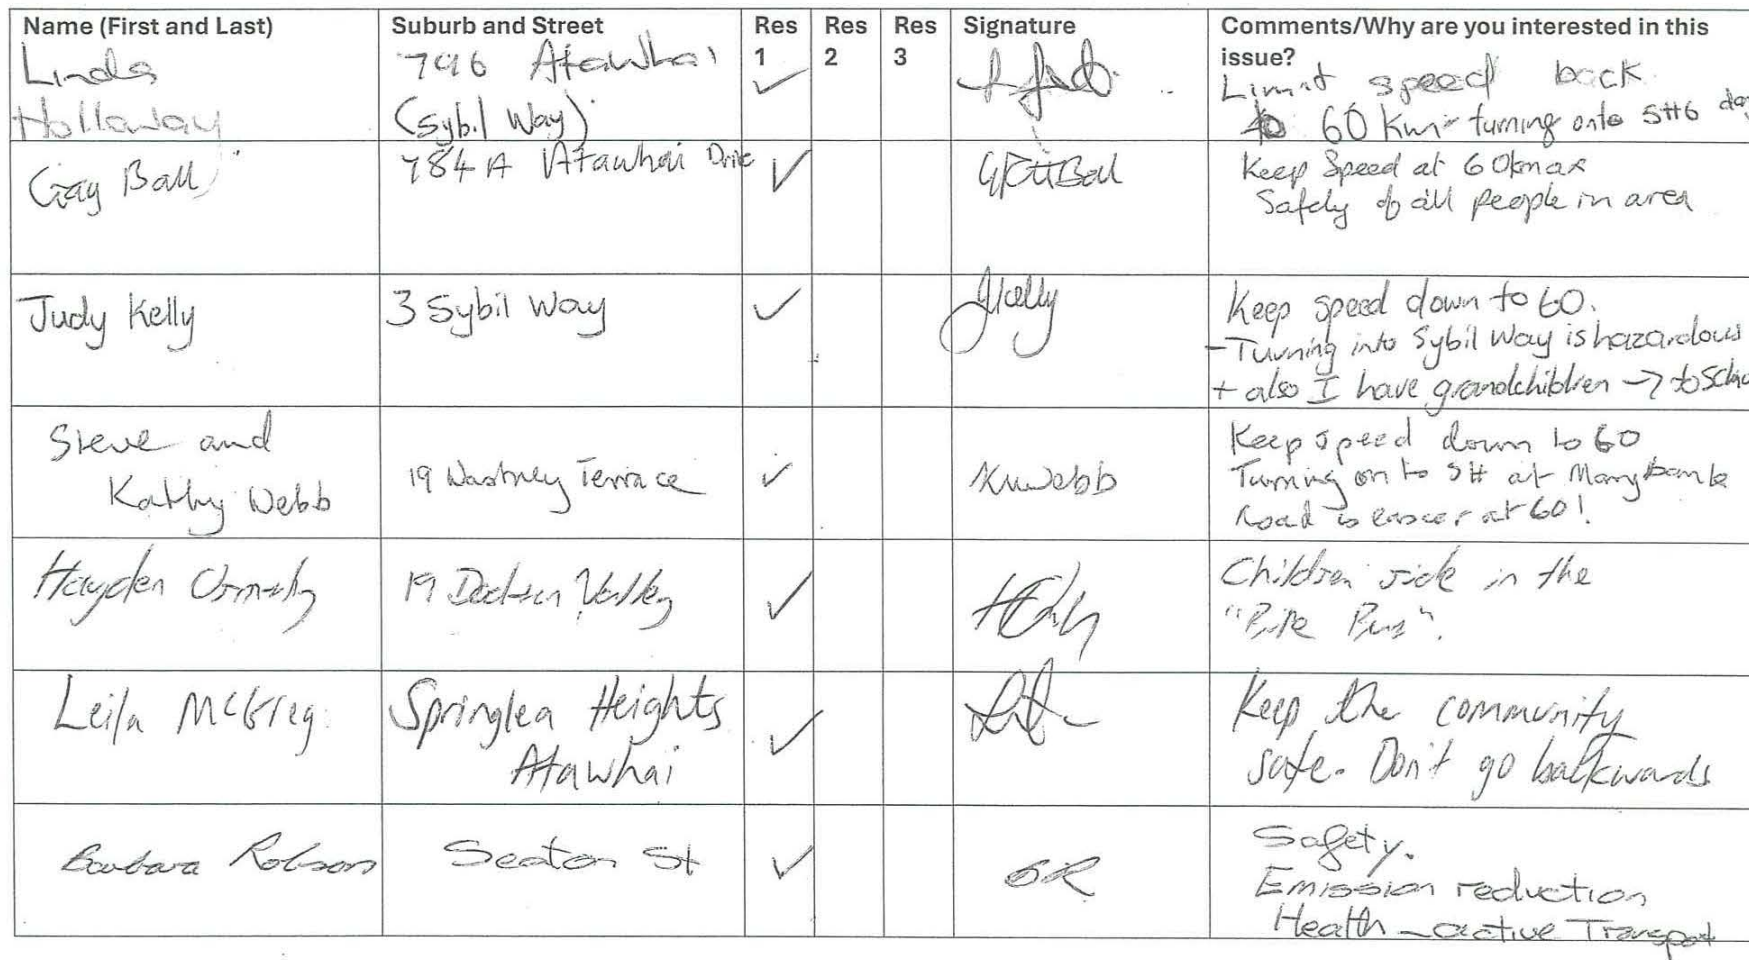 Name (First and Last) Suburb and Street Res 1 Res 2 Res 3 Signature Comments/Why are you interested in this issue?
Linda Hollaway
796 Atawhai
(Sybil Way)
✓
Limit speed back
to 60 Km - turning onto SH6
Gay Ball
784 A Atawhai Drive
✓
Keep Speed at 60kmax
Safety of all people in area
Judy Kelly
3 Sybil Way
✓
JKelly
Keep speed down to 60.
- Turning into Sybil Way is hazardous
+ also I have grandchildren →
Steve and
Kathy Webb
19 Wastney Terrace
✓
KWebb
Keep speed down to 60
Turning on to SH at Marybank
Road is easier at 60!
Hayden
19 Dodson Valley
✓
Children ride in the
"Bike Bus".
Leila McGreg
Springlea Heights
Atawhai
✓
Keep the community
safe. Don't go backwards
Barbara Robson
Seaton St
✓
BR
Safety.
Emission reduction
Health - active Transport